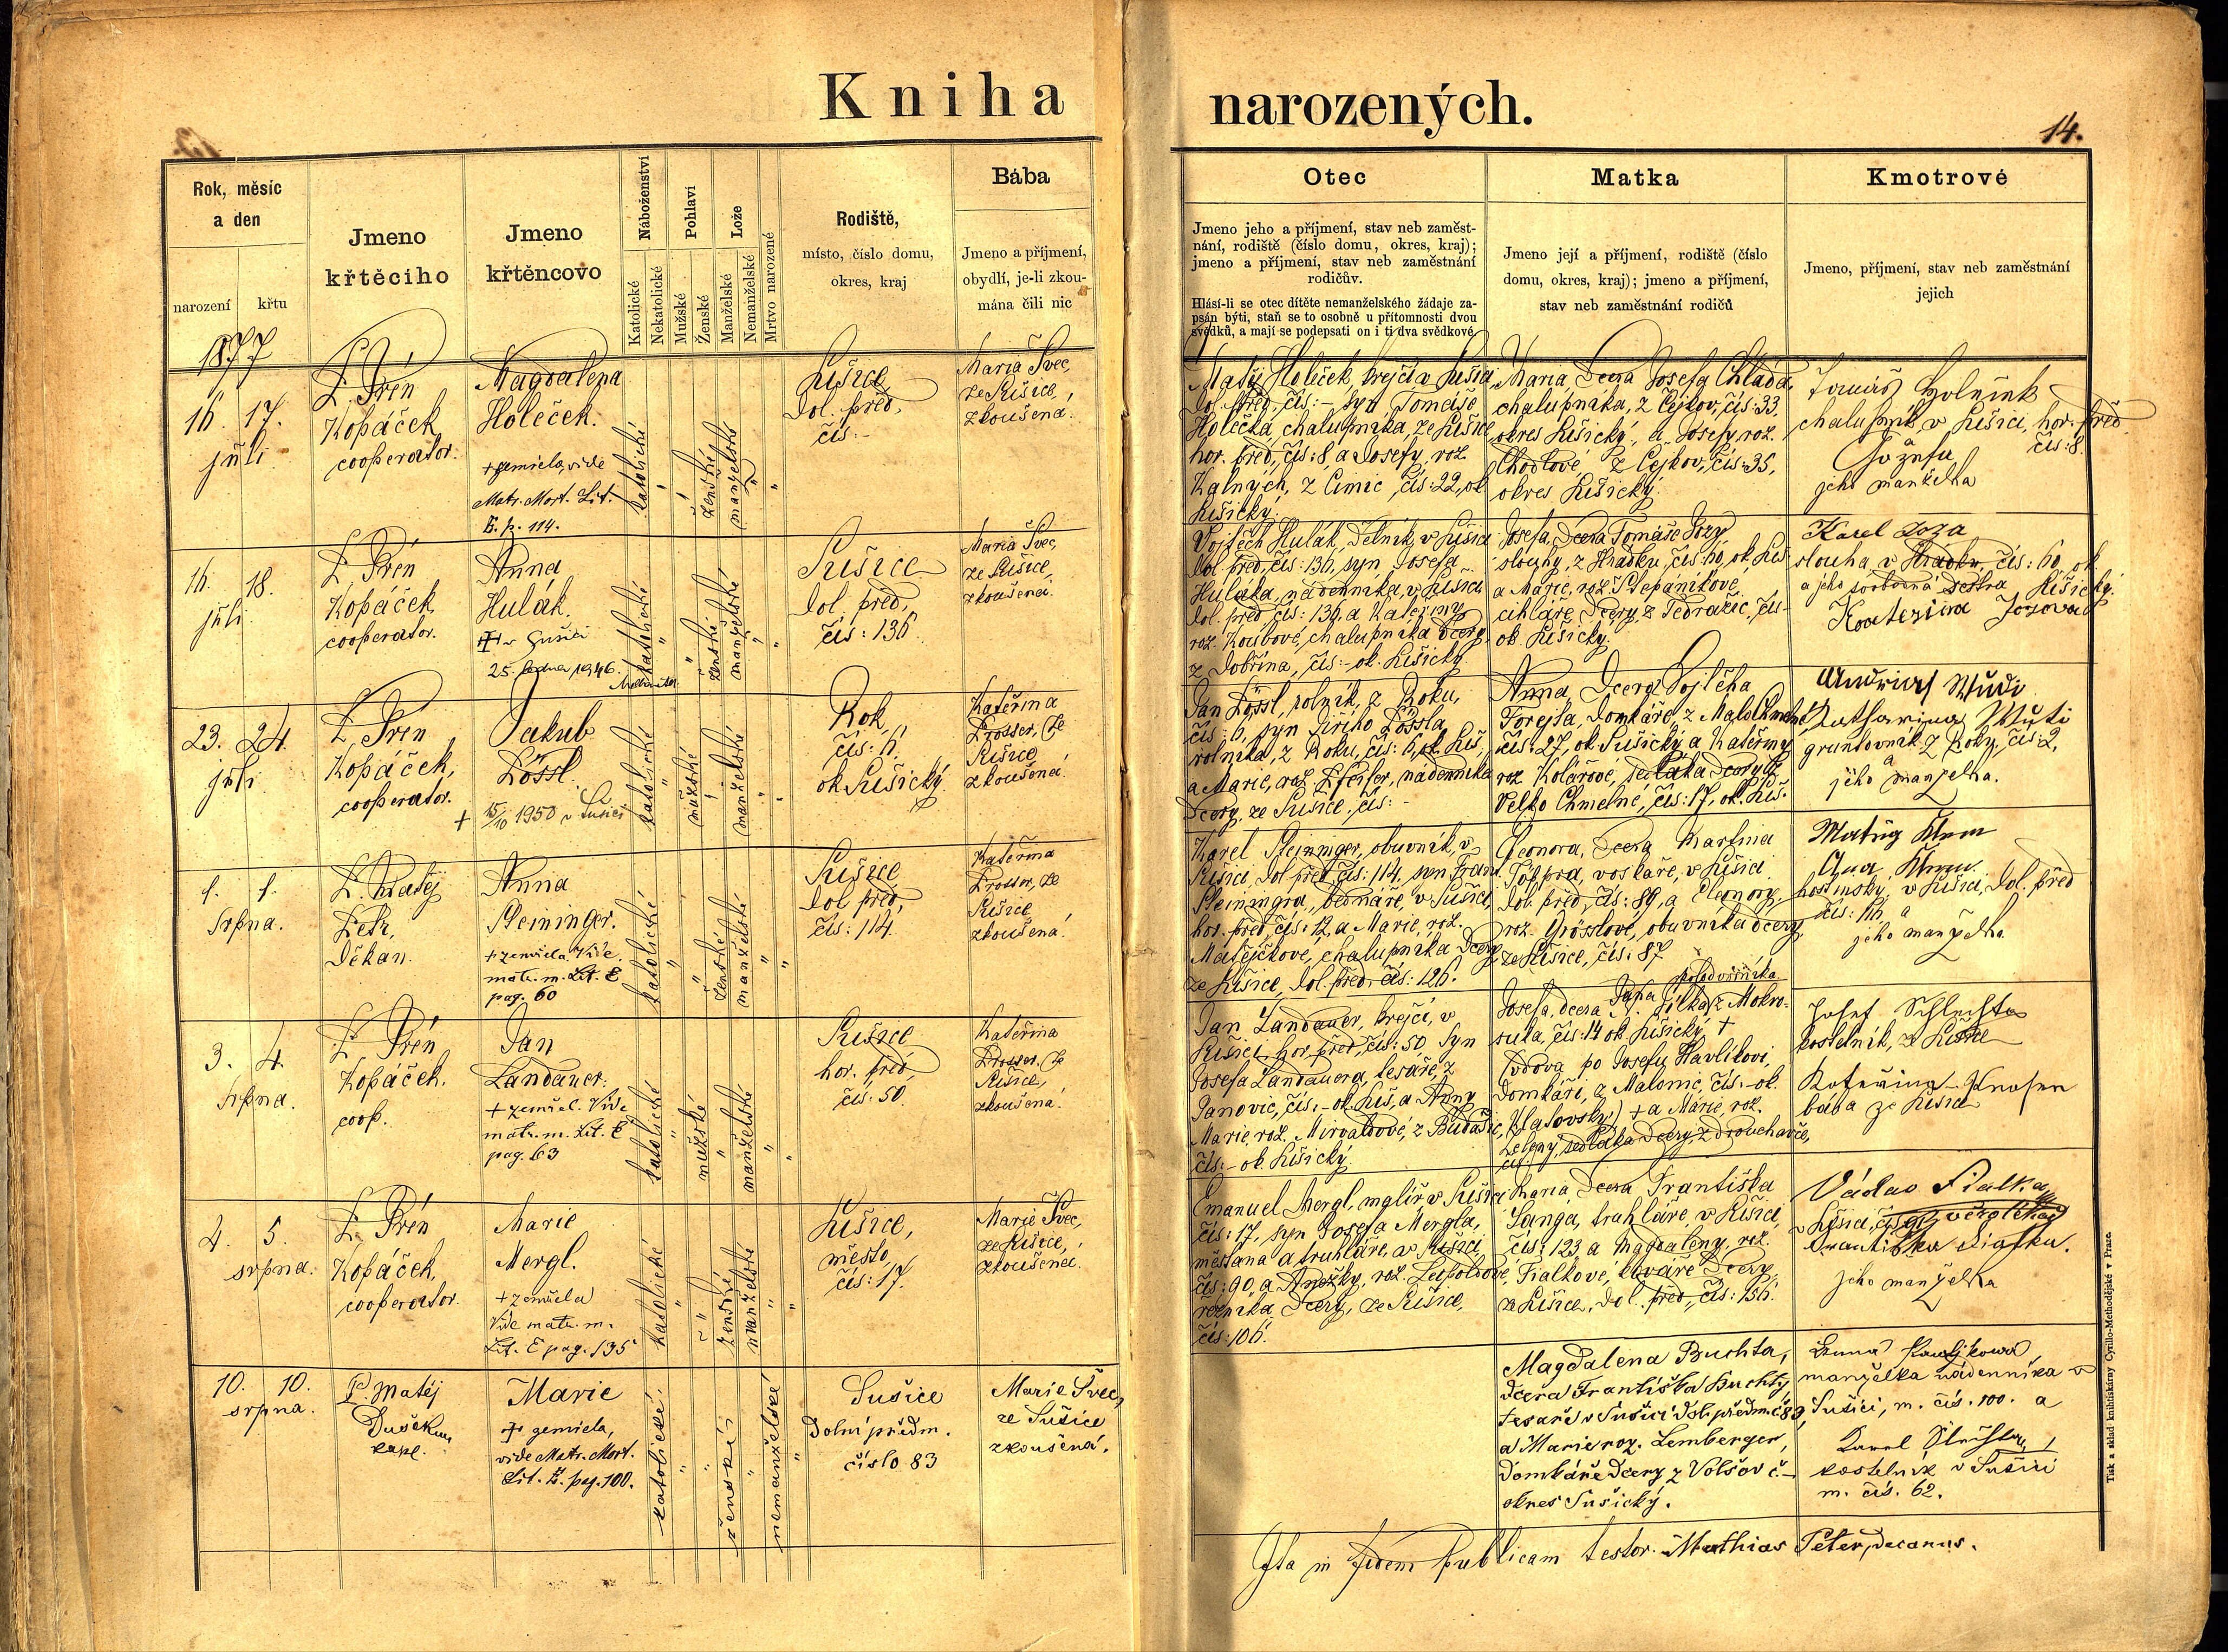 Kniha narozených.
14.
Rok, měsíc
a den
narození
křtu
Jmeno
křtěcího
Jmeno
křtěncovo
Náboženství
Katolické
Nekatolické
Pohlaví
Mužské
Ženské
Lože
Manželské
Nemanželské
Mrtvo narozené
Rodiště,
místo, číslo domu,
okres, kraj
Bába
Jmeno a příjmení,
obydlí, je-li zkou-
mána čili nic
Otec
Jmeno jeho a příjmení, stav neb zaměst-
nání, rodiště (číslo domu, okres, kraj);
jmeno a příjmení, stav neb zaměstnání
rodičův.
Hlásí-li se otec dítěte nemanželského žádaje za-
psán býti, staň se to osobně u přítomnosti dvou
svědků, a mají se podepsati on i ti dva svědkové.
Matka
Jmeno její a příjmení, rodiště (číslo
domu, okres, kraj); jmeno a příjmení,
stav neb zaměstnání rodičů
Kmotrové
Jmeno, příjmení, stav neb zaměstnání
jejich
1877
16. 17.
júli
P. Prén
Kopáček
cooperator.
Magdalena
Holeček.
+ zemřela vide
Matr. Mort. Lit.
E. p. 114.
katolické
ženské
manželské
Sušice
dol. před,
čís: -
Maria Švec,
ze Sušice,
zkoušená.
Matěj Holeček, krejčí v Sušici
dol. před, čís: - syn Tomáše
Holečka, chalupníka, ze Sušice
hor. před, čís: 8, a Josefy, roz.
Kalných, z Čimic, čís: 22, ok
Sušický.
Maria, dcera Josefa Chlada,
chalupníka, z Čejkov, čís: 33,
okres Sušický, a Josefy, roz.
z Čejkov, čís: 35,
okres Sušický.
Tomáš
chalupník v Sušici, hor. před
čís: 8.
a
Jozefa
jeho manželka
16. 18.
júli
P. Prén
Kopáček
cooperator.
Anna
Hulák.
+ v Sušici
25. ledna 1946.
katolické
ženské
manželské
Sušice
dol. před,
čís: 136
Maria Švec,
ze Sušice,
zkoušená.
Vojtěch Hulák, dělník v Sušici
dol. před, čís: 136, syn Josefa
Huláka, nádenníka, v Sušici
dol. před, čís: 136, a Kateřiny
roz. chalupníka dcery
z Dobřína, čís: - ok. Sušický.
Josefa, dcera Tomáše Jozy,
slouhy, z Hrádku, čís: 60, ok. Suš
a Marie, roz. Štěpánikové
cihláře dcery, z Tedražic, čís -
ok. Sušický.
Karel Joza
slouha v Hrádku, čís: 60, ok.
Sušický.
a jeho svobodná sestra
Kateřina Jozova
23. 24.
júli
P. Prén
Kopáček,
cooperator.
Jakub
Lössl.
+ 15/10 1950 v Sušici
katolické
mužské
manželské
Rok
čís: 6.
ok Sušický.
Kateřina
Prosser, ze
Sušice
zkoušená.
Jan Lössl, rolník, z Roku,
čís: 6, syn Jiřího Lössla,
rolníka, z Roku, čís: 6, ok. Suš,
a Marie, roz. Pfeifer, nádenníka
dcery, ze Sušice, čís: -
Anna, dcera Vojtěcha
domkáře, z Malo Chmelné,
čís: 27, ok. Sušický, a Kateřiny
roz. Kolářové, sedláka dcery z
Velko Chmelné, čís: 17, ok. Suš.
Katharina
gruntovník z Roky, čís: 2,
a
jeho manželka.
1. 1.
Srpna.
P. Matěj
Petr,
Děkan.
Anna
Steininger.
+ zemřela. Vide
matr. m. Lit. E
pag. 60
katolické
ženské
manželské
Sušice
dol před,
čís: 114.
Kateřina
Prosser, ze
Sušice,
zkoušená.
Karel Steininger, obuvník, v
Sušici, dol před čís: 114, syn Frant.
bednáře, v Sušici,
hor. před, čís: 12, a Marie, roz.
Matějčkové, chalupníka dcery
ze Sušice, dol. před, čís: 126.
Eleonora, dcera Martina
voskáře, v Sušici
dol. před, čís: 89, a Eleonory,
roz. Grösslové, obuvníka dcery
ze Sušice, čís: 87
hostinský, v Sušici, dol. před
čís: 116, a
jeho manželka
3. 4.
Srpna.
P. Prén
Kopáček.
coop.
Jan
Landauer.
+ zemřel. Vide
matr. m. Lit. E
pag. 63
katolické
mužské
manželské
Sušice
hor. před,
čís: 50.
Kateřina
Prosser, ze
Sušice,
zkoušená.
Jan Landauer, krejčí, v
Sušici, hor. před, čís: 50 syn
Josefa Landauera, tesáře, z
Janovic, čís: - ok. Suš, a Anny
Marie, roz. z Budašic,
čís: - ok. Sušický.
Josefa, dcera z Mokro-
suka, čís: 14 ok. Sušický, +
(vdova po Josefu Havlíkovi,
domkáři, z Malonic, čís: - ok.
Klatovský) + a Marie, roz.
Zeleny, sedláka dcery,
Josef Schlechta
kostelník, z Sušice
Kateřina
bába ze Sušice
4. 5.
srpna.
P. Prén
Kopáček,
cooperator.
Marie
Mergl.
+ zemřela
Vide matr. m.
Lit. E pag. 135
katolické
ženské
manželské
Sušice,
město,
čís: 17.
Marie Švec,
ze Sušice,
zkoušená.
Emanuel Mergl, malíř v Sušici
čís: 17, syn Josefa Mergla,
měšťana a truhláře, v Sušici
čís: 90, a Anežky, roz. Leopoldové,
řezníka dcery, ze Sušice,
čís: 106.
Maria, dcera Františka
Langa, truhláře, v Sušici,
čís: 123, a Magdaleny, roz.
Fialkové, dcery
ze Sušice, dol. před, čís: 156.
Václav Fialka
v Sušici,
Františka Fialka.
jeho manželka
10. 10.
srpna.
P. Matěj
Dušek
kapl.
Marie
+ zemřela,
vide Matr. Mort.
Lit. E. pag. 100.
katolické
ženské
nemanželské
Sušice
Dolní předm.
číslo 83
Marie Švec,
ze Sušice
zkoušená.
Magdalena Buchta,
dcera Františka Buchty,
tesaře v Sušici dol. předm. č 83,
a Marie roz. Lemberger,
domkáře dcery z Volšov č -
okres Sušický.
manželka nádenníka v
Sušici, m. čís. 100. a
Karel
kostelník v Sušici
m. čís. 62.
Ita in fidem publicam testor. Mathias Peter, decanus.
Tisk a sklad knihtiskárny Cyrillo-Methodějské v Praze.